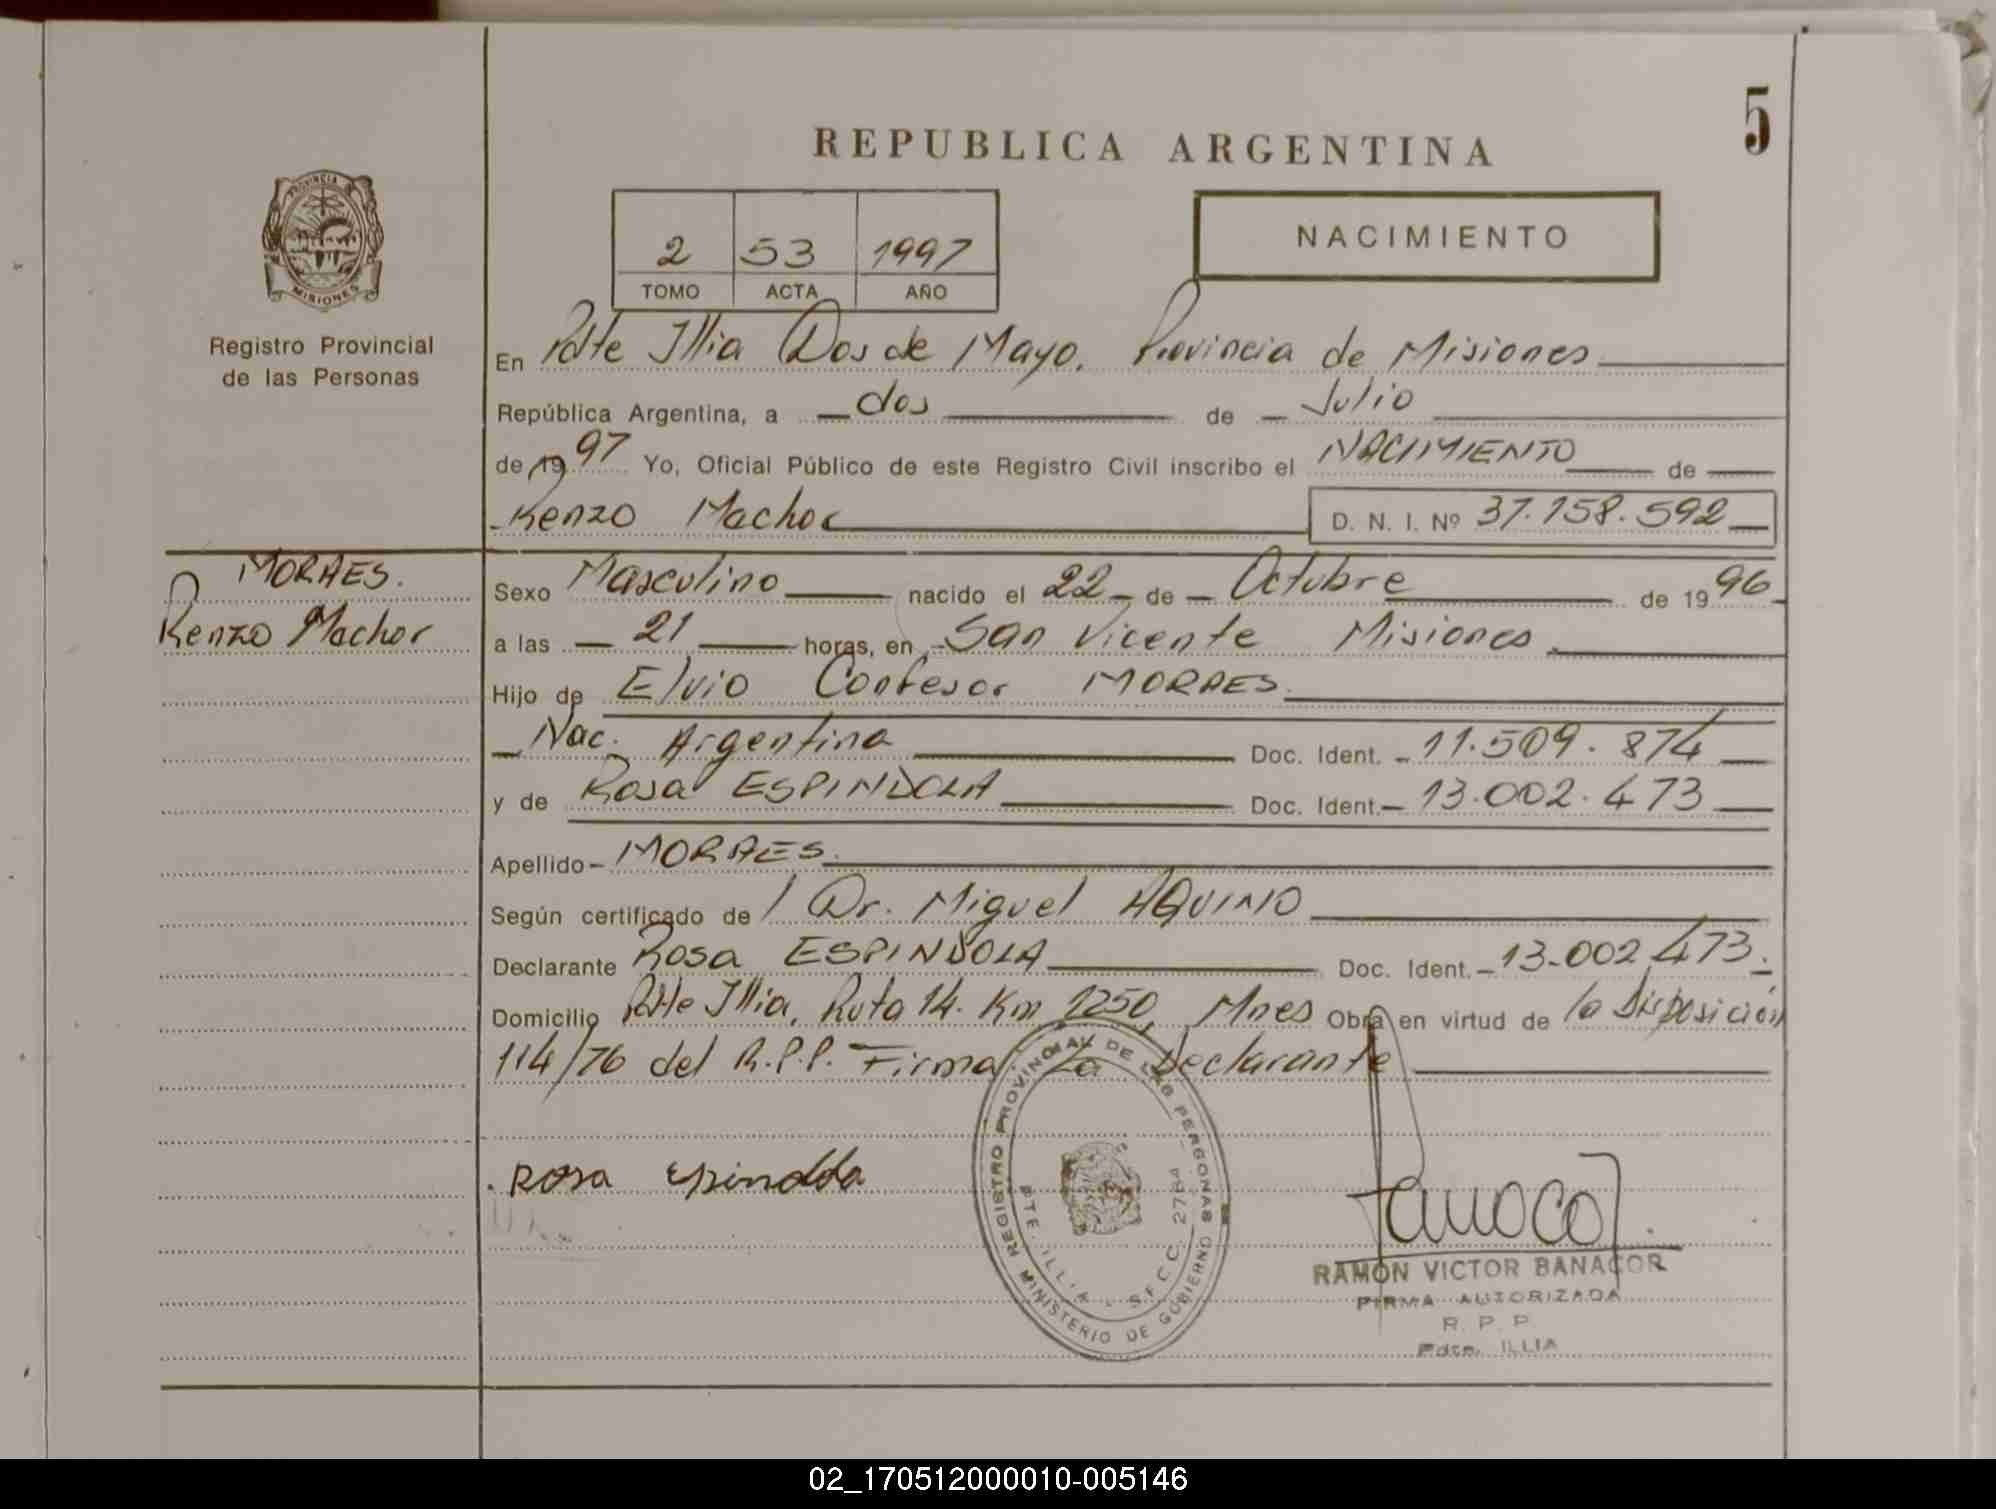 5
REPUBLICA ARGENTINA
PROVINCIA
MISIONES
Registro Provincial
de las Personas
NACIMIENTO
2 53 1997
TOMO ACTA AÑO
En Pdte Illia Dos de Mayo, Provincia de Misiones
República Argentina, a dos de Julio
de 1997 Yo, Oficial Público de este Registro Civil inscribo el NACIMIENTO de
Renzo Machor D. N. I. Nº 37.158.592
MORAES.
Renzo Machor
Sexo Masculino nacido el 22 de Octubre de 1996
a las 21 horas, en San Vicente Misiones
Hijo de Elvio Confesor MORAES.
Nac. Argentina Doc. Ident. 11.509.874
y de Rosa ESPINDOLA Doc. Ident. 13.002.473
Apellido MORAES.
Según certificado de Dr. Miguel AQUINO
Declarante Rosa ESPINDOLA Doc. Ident. 13.002.473.
Domicilio Pdte Illia, Ruta 14. Km 1250, Mnes Obra en virtud de la Disposición
114/76 del R.P.P. Firma La Declarante
Rosa Espindola
REGISTRO PROVINCIAL DE LAS PERSONAS
MINISTERIO DE GOBIERNO
PTE. ILLIA - S.F.C.C. 2764
RAMON VICTOR BANACOR
FIRMA AUTORIZADA
R. P. P.
Pdte. ILLIA
02_170512000010-005146